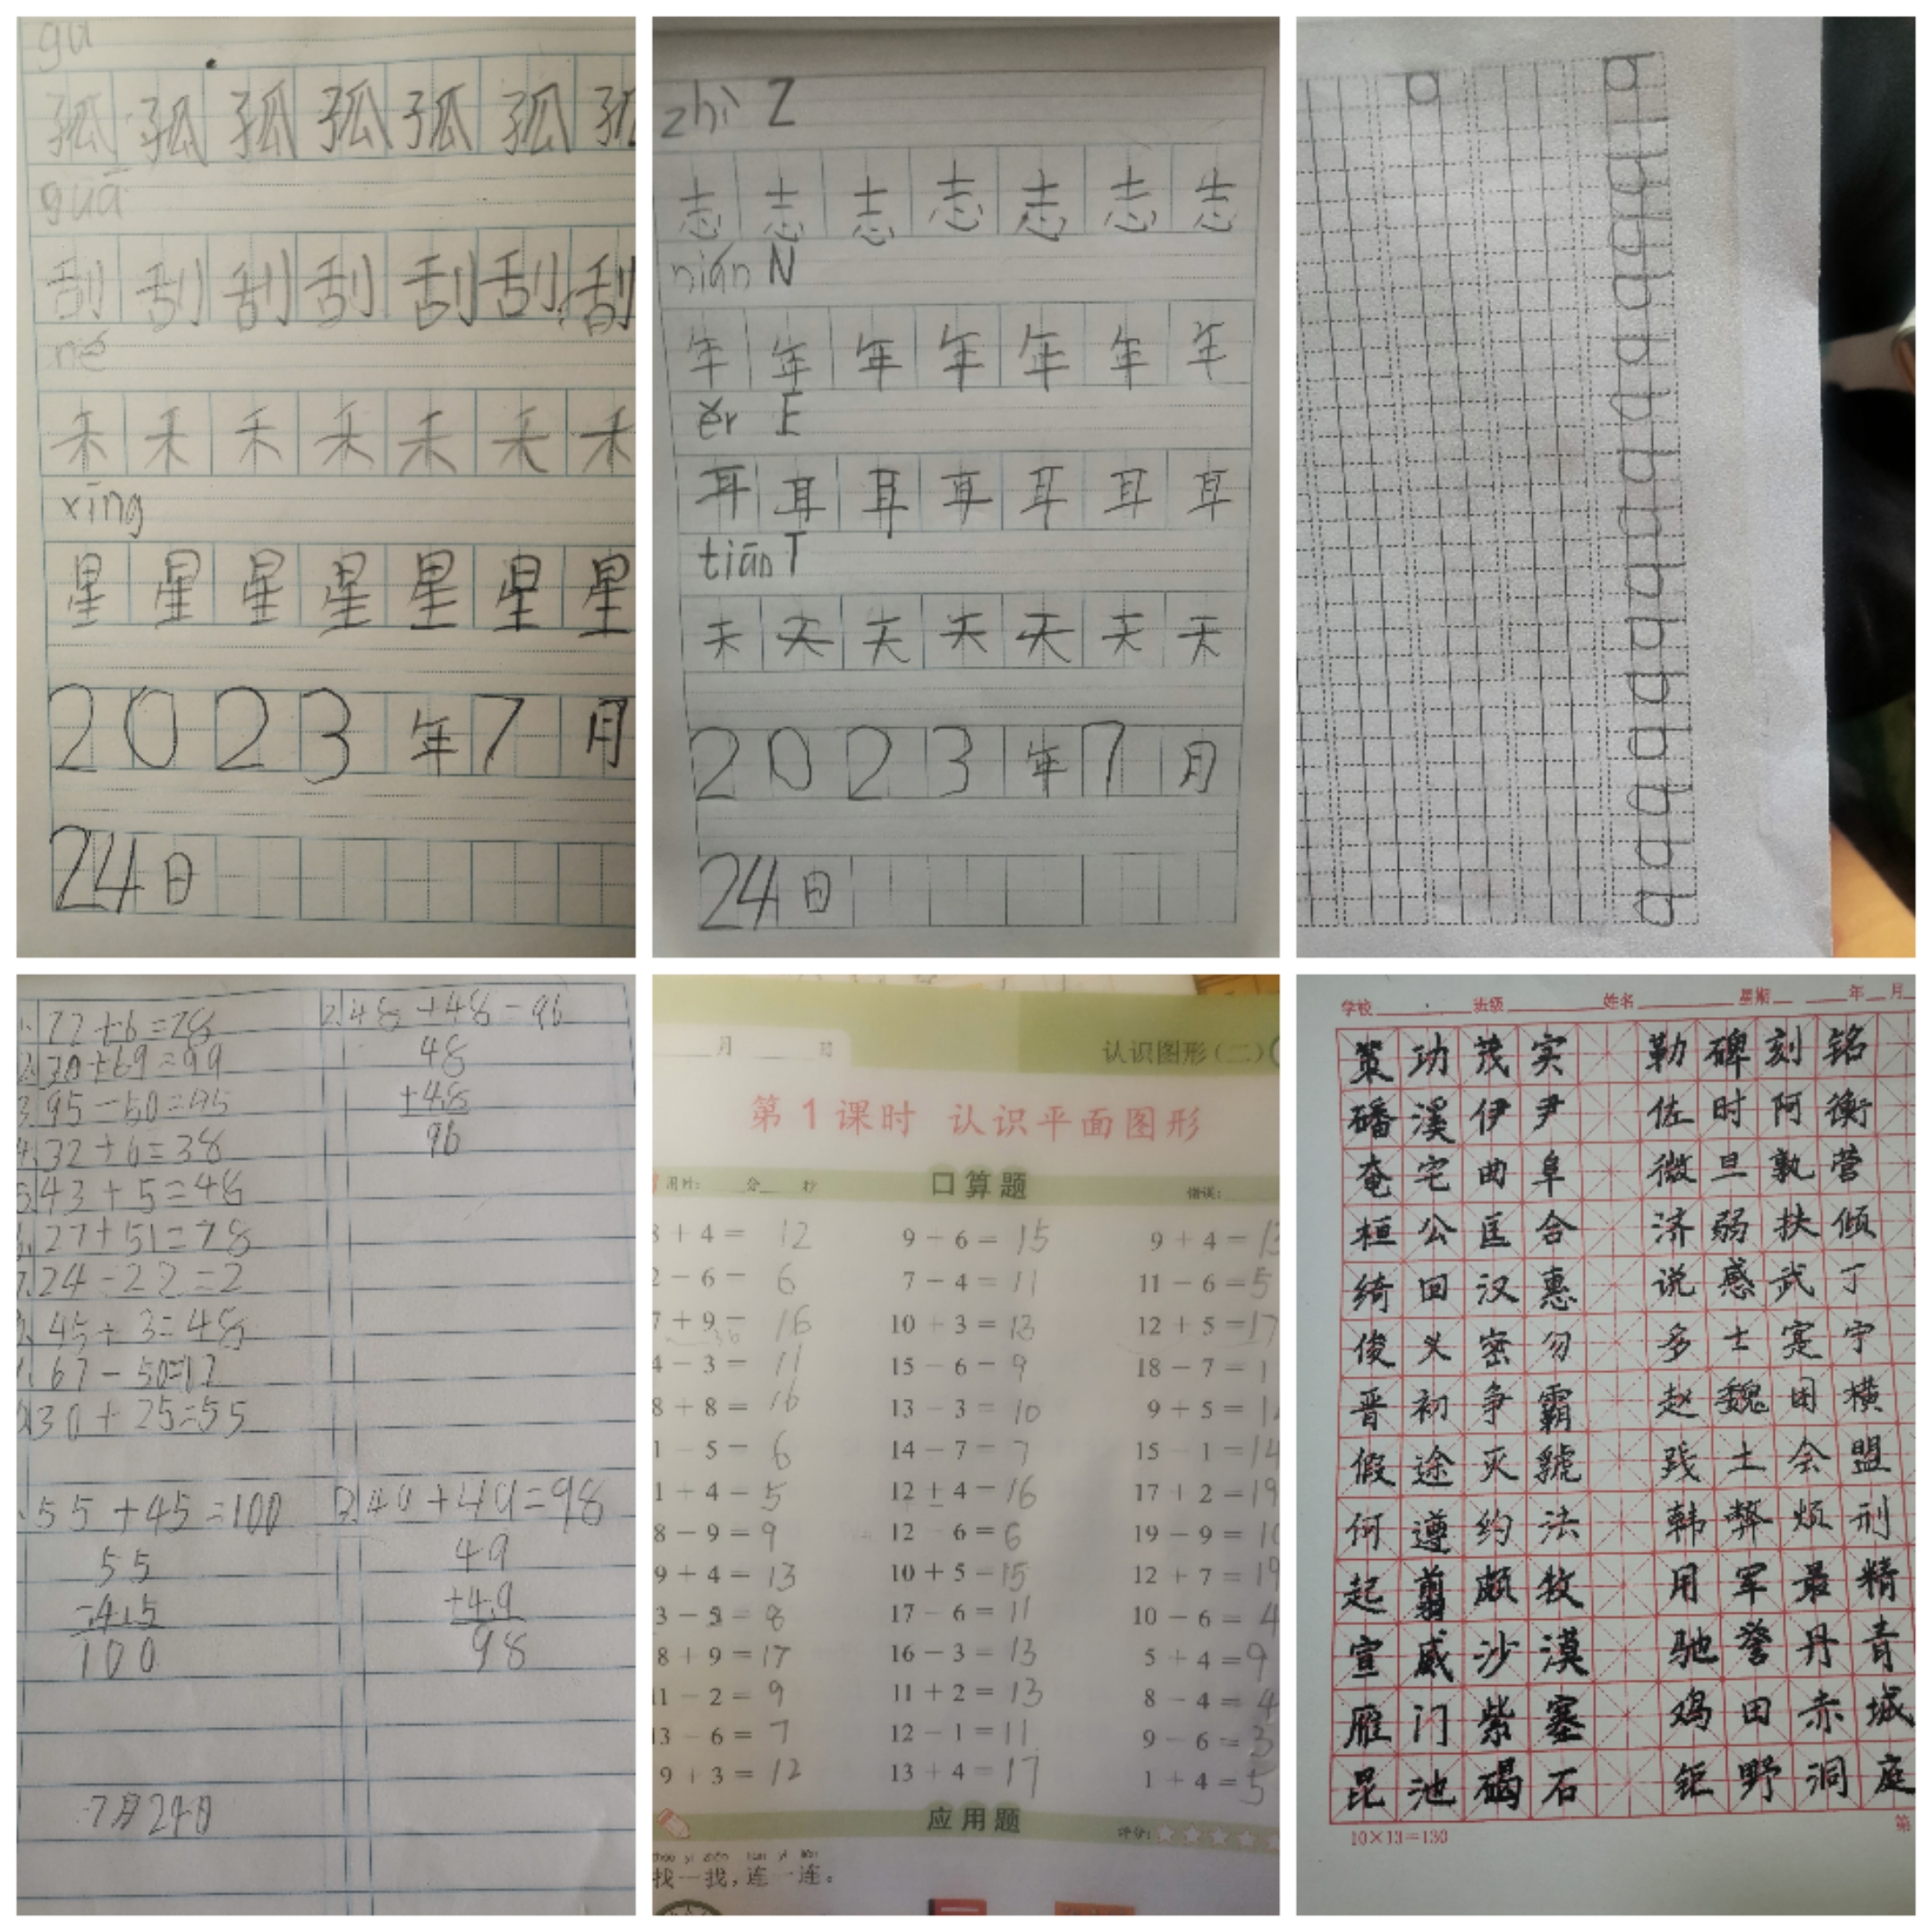 gu
孤 孤 孤 孤 孤 孤 孤
guā
刮 刮 刮 刮 刮 刮 刮
hé
禾 禾 禾 禾 禾 禾 禾
xīng
星 星 星 星 星 星 星
2023年7月
24日
zhì Z
志 志 志 志 志 志 志
nián N
年 年 年 年 年 年 年
ěr E
耳 耳 耳 耳 耳 耳 耳
tiān T
天 天 天 天 天 天 天
2023年7月
24日
22+6=28
30+69=99
3.95-50=45
4.32+6=38
5.43+5=48
27+51=78
7.24-22=2
45+3=48
67-50=17
30+25=55
2.48+48=96
48
+48
96
55+45=100
55
+45
100
2.49+49=98
49
+49
98
7月24日
月 日
认识图形(二)
第1课时 认识平面图形
用时: 分 秒 口算题 错误:
8+4=12 9+6=15 9+4=13
2-6=6 7+4=11 11-6=5
7+9=16 10+3=13 12+5=17
4-3=11 15-6=9 18-7=1
8+8=16 13-3=10 9+5=1
1-5=6 14-7=7 15-1=14
1+4=5 12+4=16 17+2=19
8-9=9 12-6=6 19-9=10
9+4=13 10+5=15 12+7=19
3-5=8 17-6=11 10-6=4
8+9=17 16-3=13 5+4=9
11-2=9 11+2=13 8-4=4
13-6=7 12-1=11 9-6=3
9+3=12 13+4=17 1+4=5
应用题 评分:
找一找,连一连。
学校 班级 姓名 星期 年 月
策功茂实 勒碑刻铭
磻溪伊尹 佐时阿衡
奄宅曲阜 微旦孰营
桓公匡合 济弱扶倾
绮回汉惠 说感武丁
俊乂密勿 多士寔宁
晋初争霸 赵魏困横
假途灭虢 践土会盟
何遵约法 韩弊烦刑
起翦颇牧 用军最精
宣威沙漠 驰誉丹青
雁门紫塞 鸡田赤城
昆池碣石 钜野洞庭
10×13=130
第